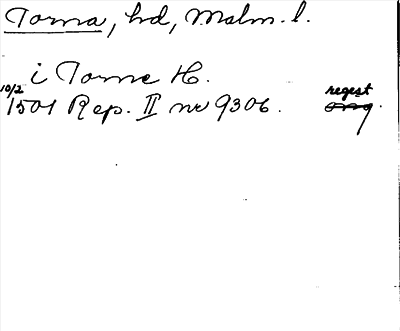 Torna, hd, Malm. l.
i Torne H.
10/2 1501 Rep. II nr 9306. regest
orig.